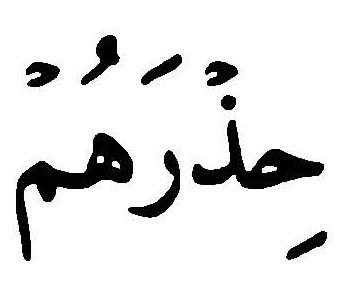 حِذْرَهُمْ